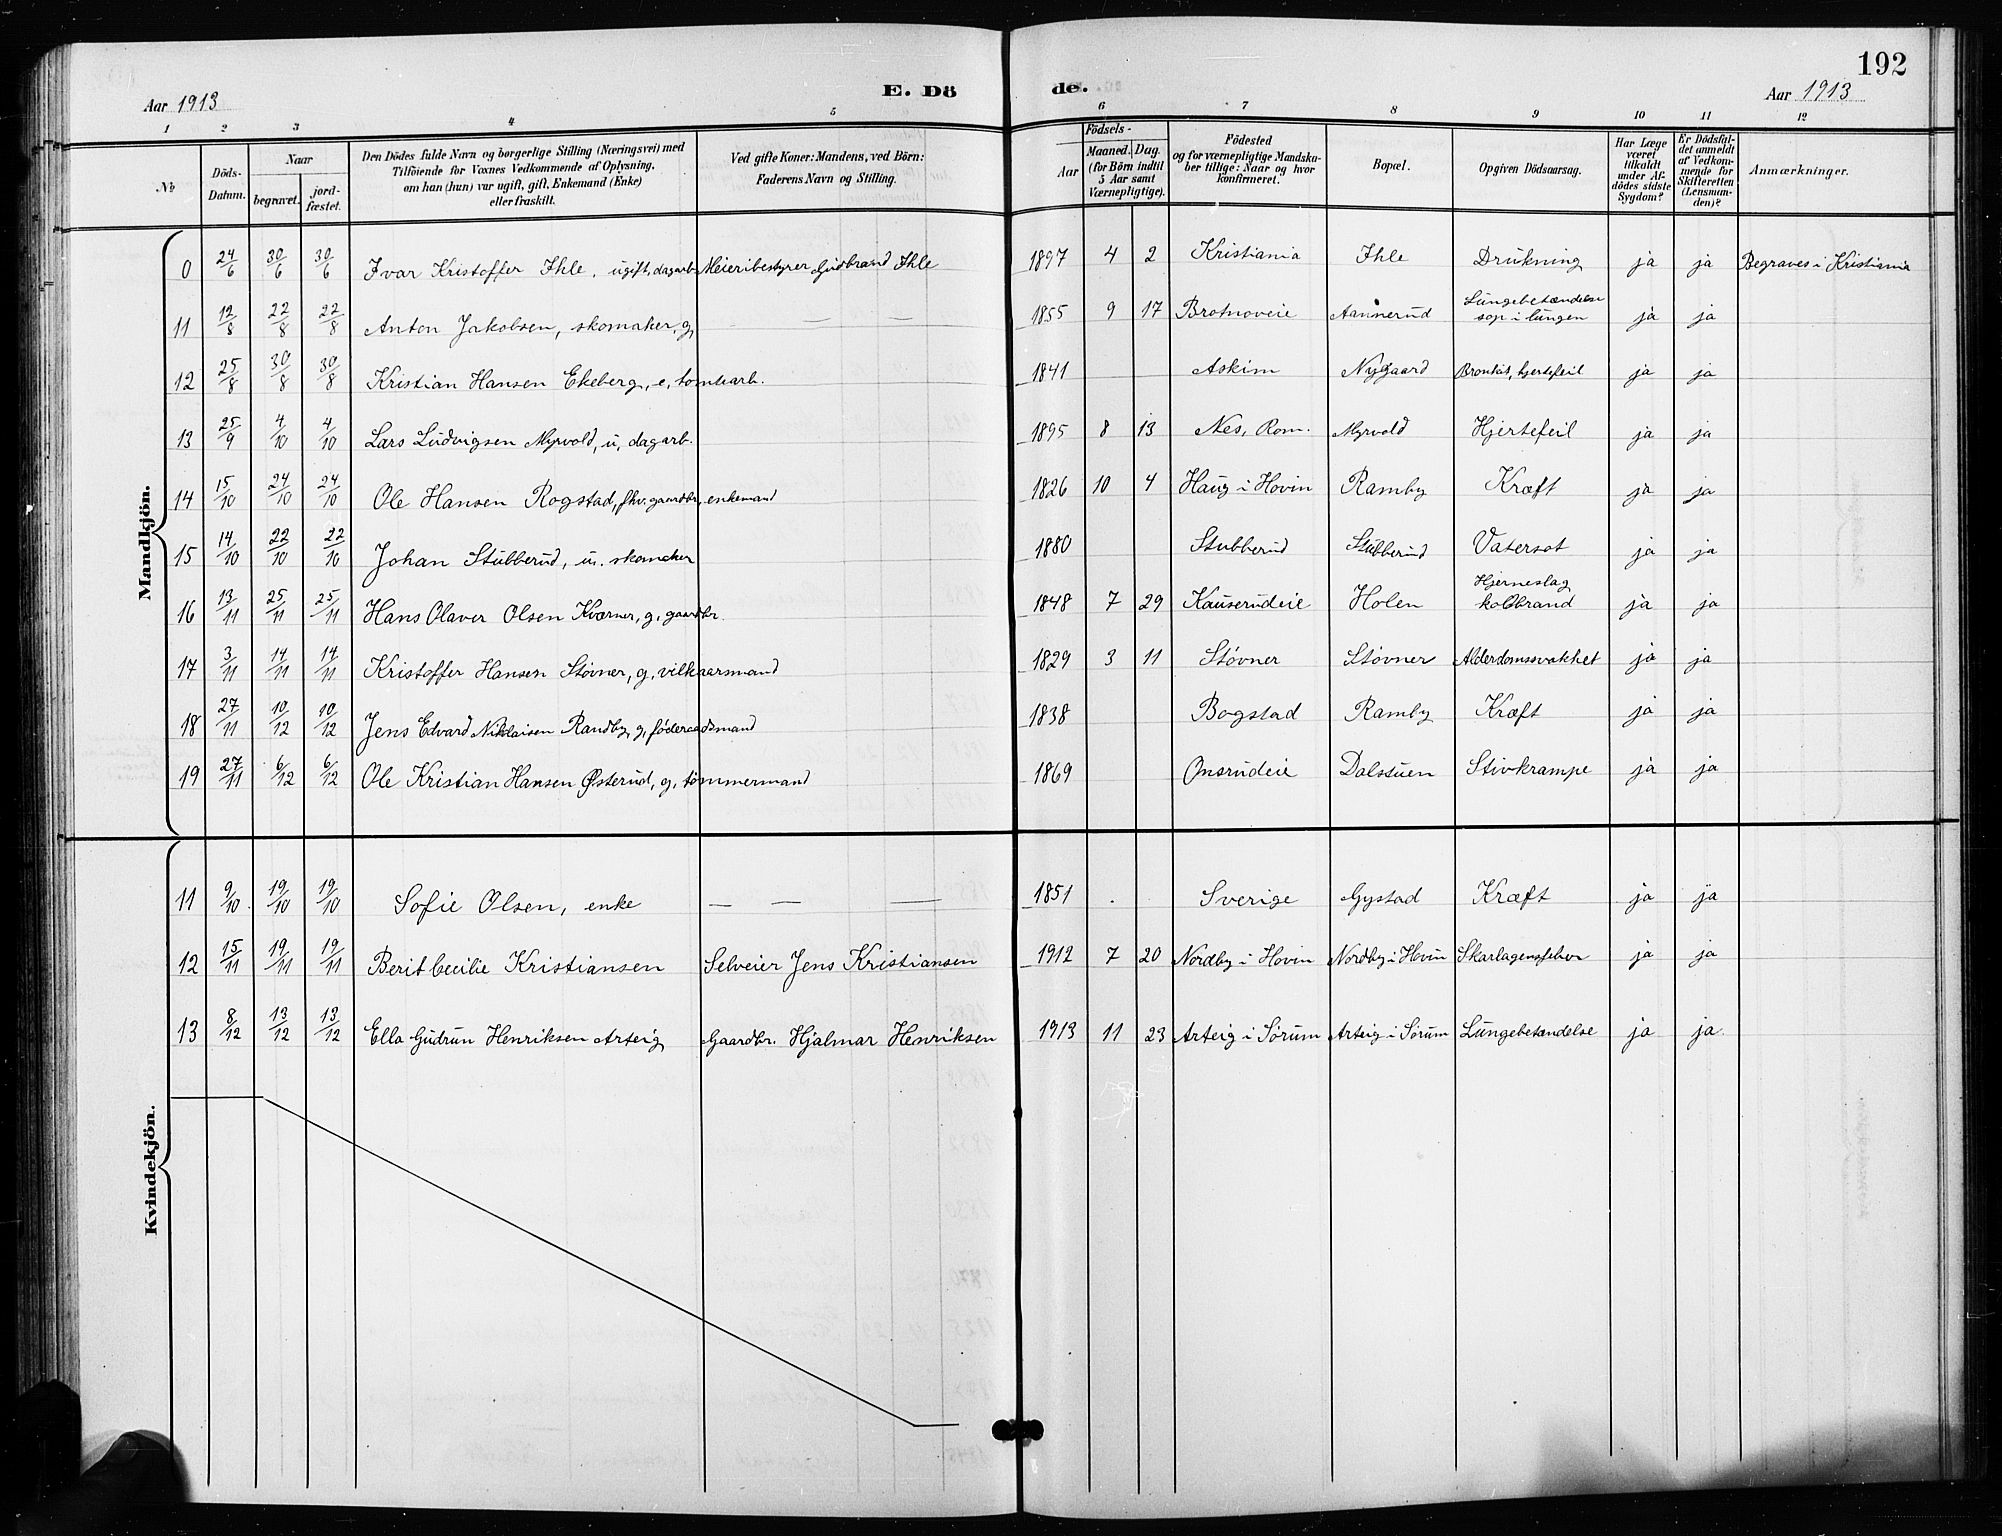 192
Aar 1913
E. Dö
de.
Aar 1913
1 2 3 4 5 6 7 8 9 10 11 12
№
Döds-
Datum.
Naar
begravet.
jord-
fæstet.
Den Dödes fulde Navn og borgerlige Stilling (Næringsvei) med
Tilföiende for Voxnes Vedkommende af Oplysning,
om han (hun) var ugift, gift, Enkemand (Enke)
eller fraskilt.
Ved gifte Koner: Mandens, ved Börn:
Faderens Navn og Stilling.
Födsels-
Aar
Maaned. Dag.
(for Börn indtil
5 Aar samt
Værnepligtige).
Födested
og for værnepligtige Mandska-
ber tillige: Naar og hvor
konfirmeret.
Bopæl.
Opgiven Dödsaarsag.
Har Læge
været
tilkaldt
under Af-
dödes sidste
Sygdom?
Er Dödsfal-
det anmeldt
af Vedkom-
mende for
Skifteretten
(Lensman-
den)?
Anmærkninger.
Mandkjön.
0 24/6 30/6 30/6 Ivar Kristoffer Ihle, ugift, dagarb. Meieribestyrer Gudbrand Ihle 1897 4 2 Kristiania Ihle Drukning ja ja Begraves i Kristiania
11 12/8 22/8 22/8 Anton Jakobsen, skomaker, g, — — — 1855 9 17 Brotnoveie Aannerud Lungebetændelse sop i lungen ja ja
12 25/8 30/8 30/8 Kristian Hansen Ekeberg, e, tomtearb. 1841 Askim Nygaard Bronkit, hjertefeil ja ja
13 25/9 4/10 4/10 Lars Ludvigsen Myrvold, u, dagarb. 1895 8 13 Nes, Rom. Myrvold Hjertefeil ja ja
14 15/10 24/10 24/10 Ole Hansen Rogstad, fhv. gaardbr, enkemand 1826 10 4 Haug i Hovin Ramby Kræft ja ja
15 14/10 22/10 22/10 Johan Stubberud, u. skomaker 1880 Stubberud Stubberud Vatersot ja ja
16 13/11 25/11 25/11 Hans Olaver Olsen Kværner, g, gaardbr. 1848 7 29 Kauserudeie Holen Hjerneslag koldbrand ja ja
17 3/11 14/11 14/11 Kristoffer Hansen Støvner, g, vilkaarsmand 1829 3 11 Støvner Støvner Alderdomssvakhet ja ja
18 27/11 10/12 10/12 Jens Edvard Niklaisen Randby, g, føderaadsmand 1838 Bogstad Ramby Kræft ja ja
19 27/11 6/12 6/12 Ole Kristian Hansen Østerud, g, tømmermand 1869 Onsrudeie Dalstuen Stivkrampe ja ja
Kvindekjön.
11 9/10 19/10 19/10 Sofie Olsen, enke — — — 1851 . Sverige Gystad Kræft ja ja
12 15/11 19/11 19/11 Berit Cecilie Kristiansen Selveier Jens Kristiansen 1912 7 20 Nordby i Hovin Nordby i Hovin Skarlagensfeber ja ja
13 8/12 13/12 13/12 Ella Gudrun Henriksen Arteig Gaardbr. Hjalmar Henriksen 1913 11 23 Arteig i Sørum Arteig i Sørum Lungebetændelse ja ja